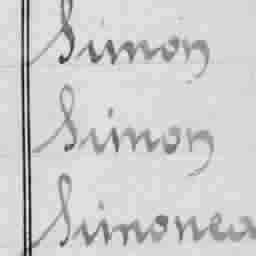 Simon
Simon
Simonea